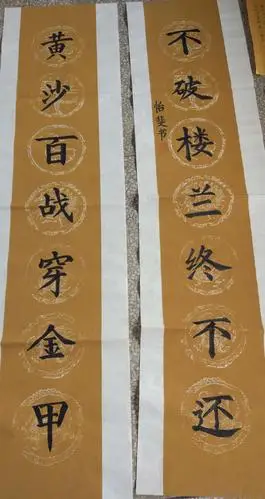 黄沙百战穿金甲
不破楼兰终不还
怡斐书